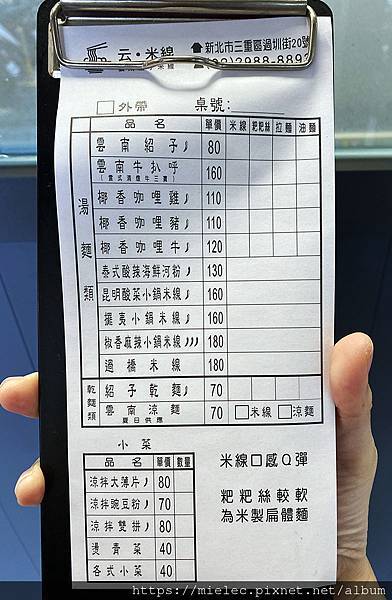 云•米線
新北市三重區過圳街20號
(02)2988-8892
外帶 桌號:
品名 單價 米線 粑粑絲 拉麵 油麵
湯麵類
雲南紹子 80
雲南牛扒呼 160
椰香咖哩雞 110
椰香咖哩豬 110
椰香咖哩牛 120
泰式酸辣海鮮河粉 130
昆明酸菜小鍋米線 160
擺夷小鍋米線 160
椒香麻辣小鍋米線 180
過橋米線 180
乾麵類
紹子乾麵 70
雲南涼麵 70 米線 涼麵
夏日供應
小菜
品名 單價 數量
涼拌大薄片 80
涼拌豌豆粉 70
涼拌雙拼 80
燙青菜 40
各式小菜 40
米線口感Q彈
粑粑絲較軟
為米製扁體麵
https://mielec.pixnet.net/album